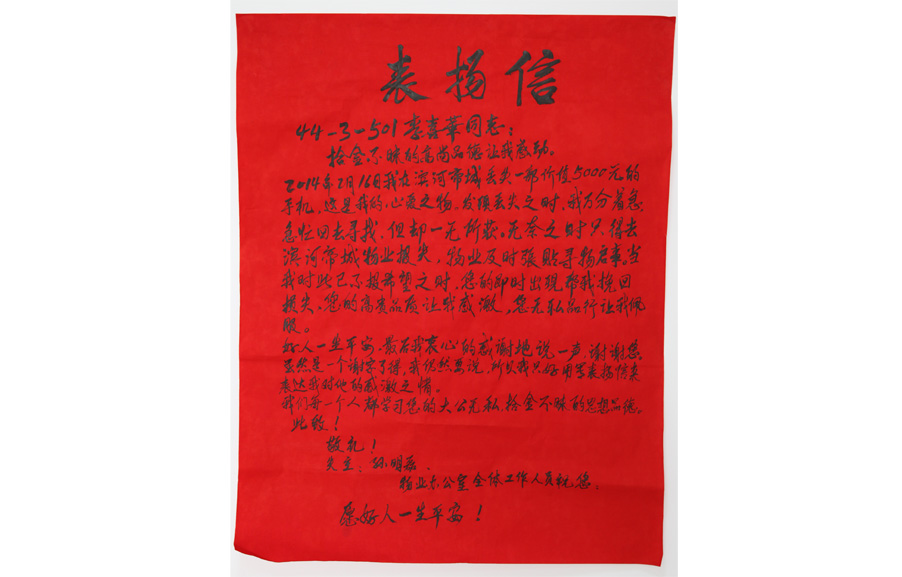 表扬信
44-3-501李喜華同志：
拾金不昧的高尚品德让我感动。
2014年2月16日我在滨河市城丢失一部价值5000元的
手机，这是我的心爱之物。发现丢失之时，我万分着急
急忙回去寻找，但却一无所获，无奈之时只得去
滨河市城物业报失，物业及时張貼寻物启事。当
我对此已不报希望之时，您的即时出现帮我挽回
损失，您的高贵品质让我感激，您无私品行让我佩
服。
好人一生平安，最后我衷心的感谢地说一声，谢谢您
虽然是一个谢字了得，我仍然要说，所以我只好用写表扬信来
表达我对他的感激之情。
我们每一个人都学习您的大公无私，拾金不昧的思想品德。
此致！
敬礼！
失主：孙明
物业办公室全体工作人员祝您：
愿好人一生平安！